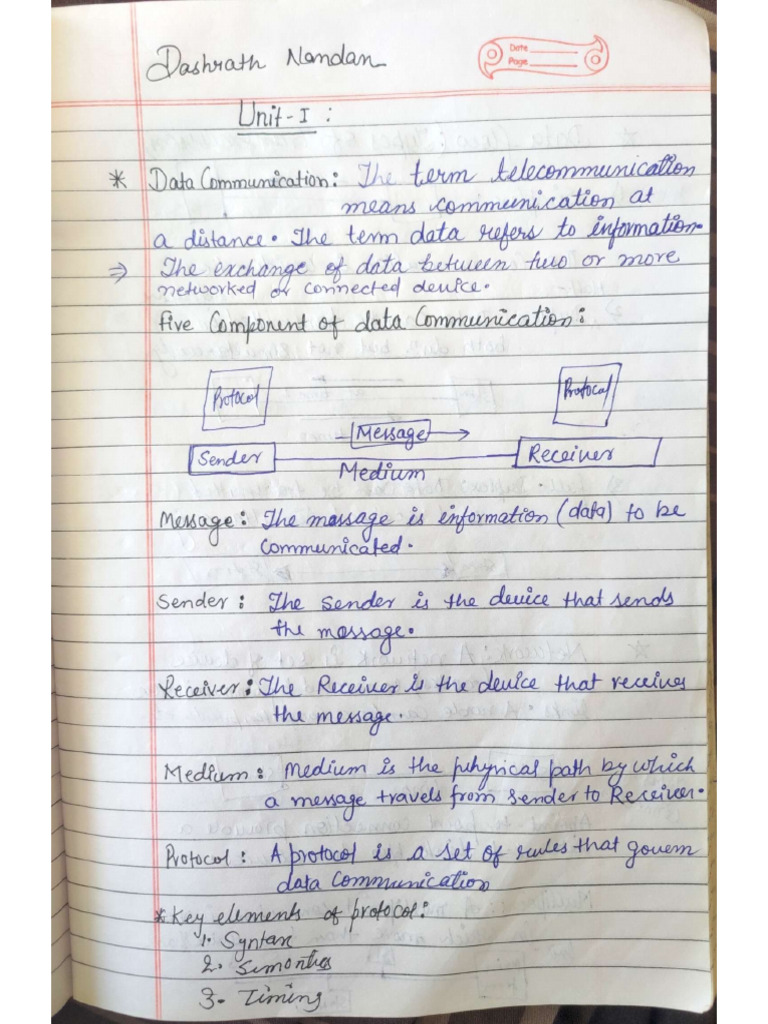 Dashrath Nandan
Date
Page
Unit-I :
* Data Communication: The term telecommunication
means communication at
a distance. The term data refers to information.
⇒ The exchange of data between two or more
networked or connected device.
Five Component of data Communication:
Protocol Protocol
Message
Sender Receiver
Medium
Message: The message is information (data) to be
Communicated.
Sender: The sender is the device that sends
the message.
Receiver: The Receiver is the device that receives
the message.
Medium: Medium is the physical path by which
a message travels from sender to Receiver.
Protocol: A protocol is a set of rules that govern
data communication
* Key elements of protocol:
1. Syntax
2. Simantics
3. Timing